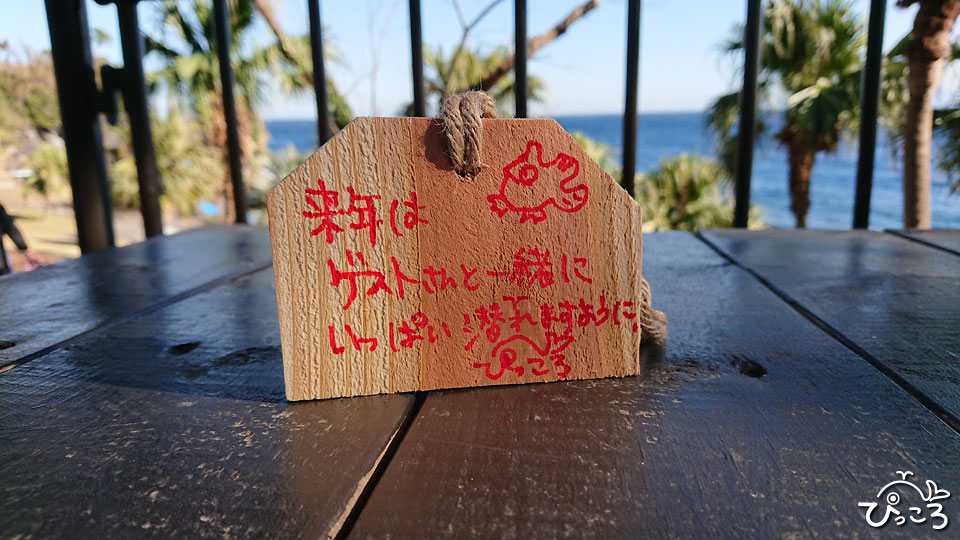 来年は
ゲストさんと一緒に
いっぱい潜れますように。
ぴっころ
ぴっころ